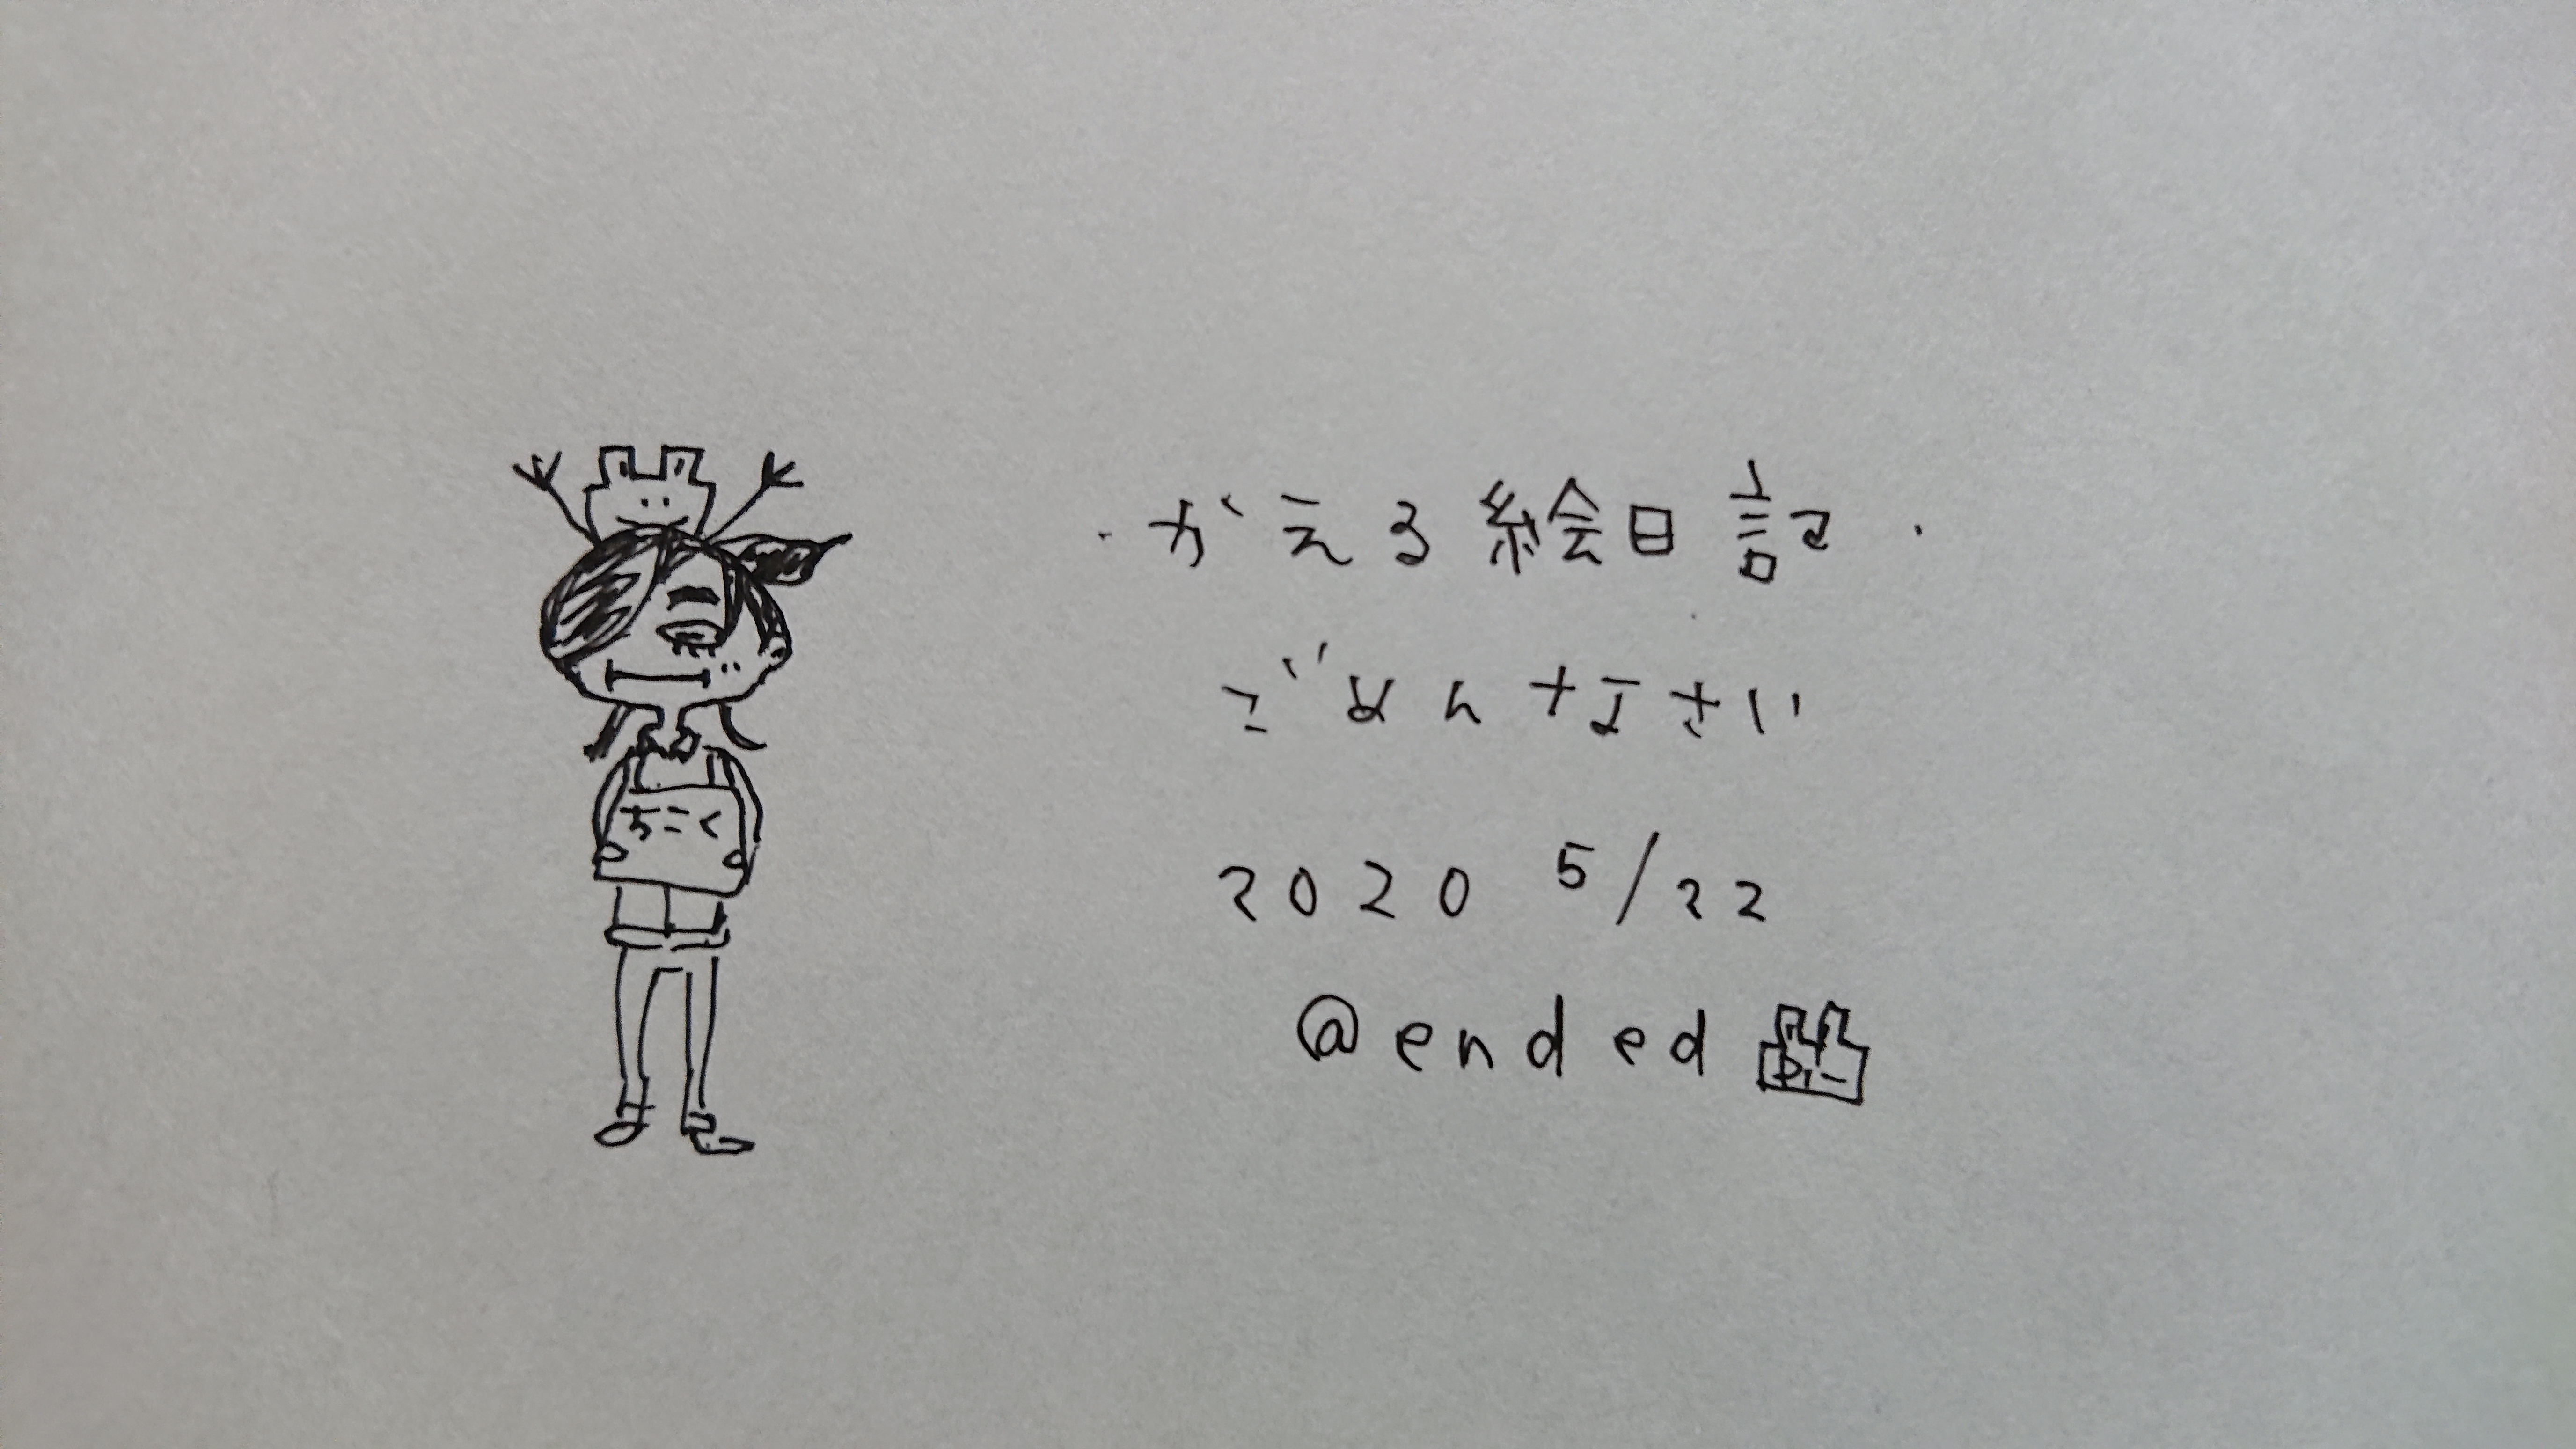 ちこく
・がえる絵日記・
ごめんなさい
2020 5/22
@ended